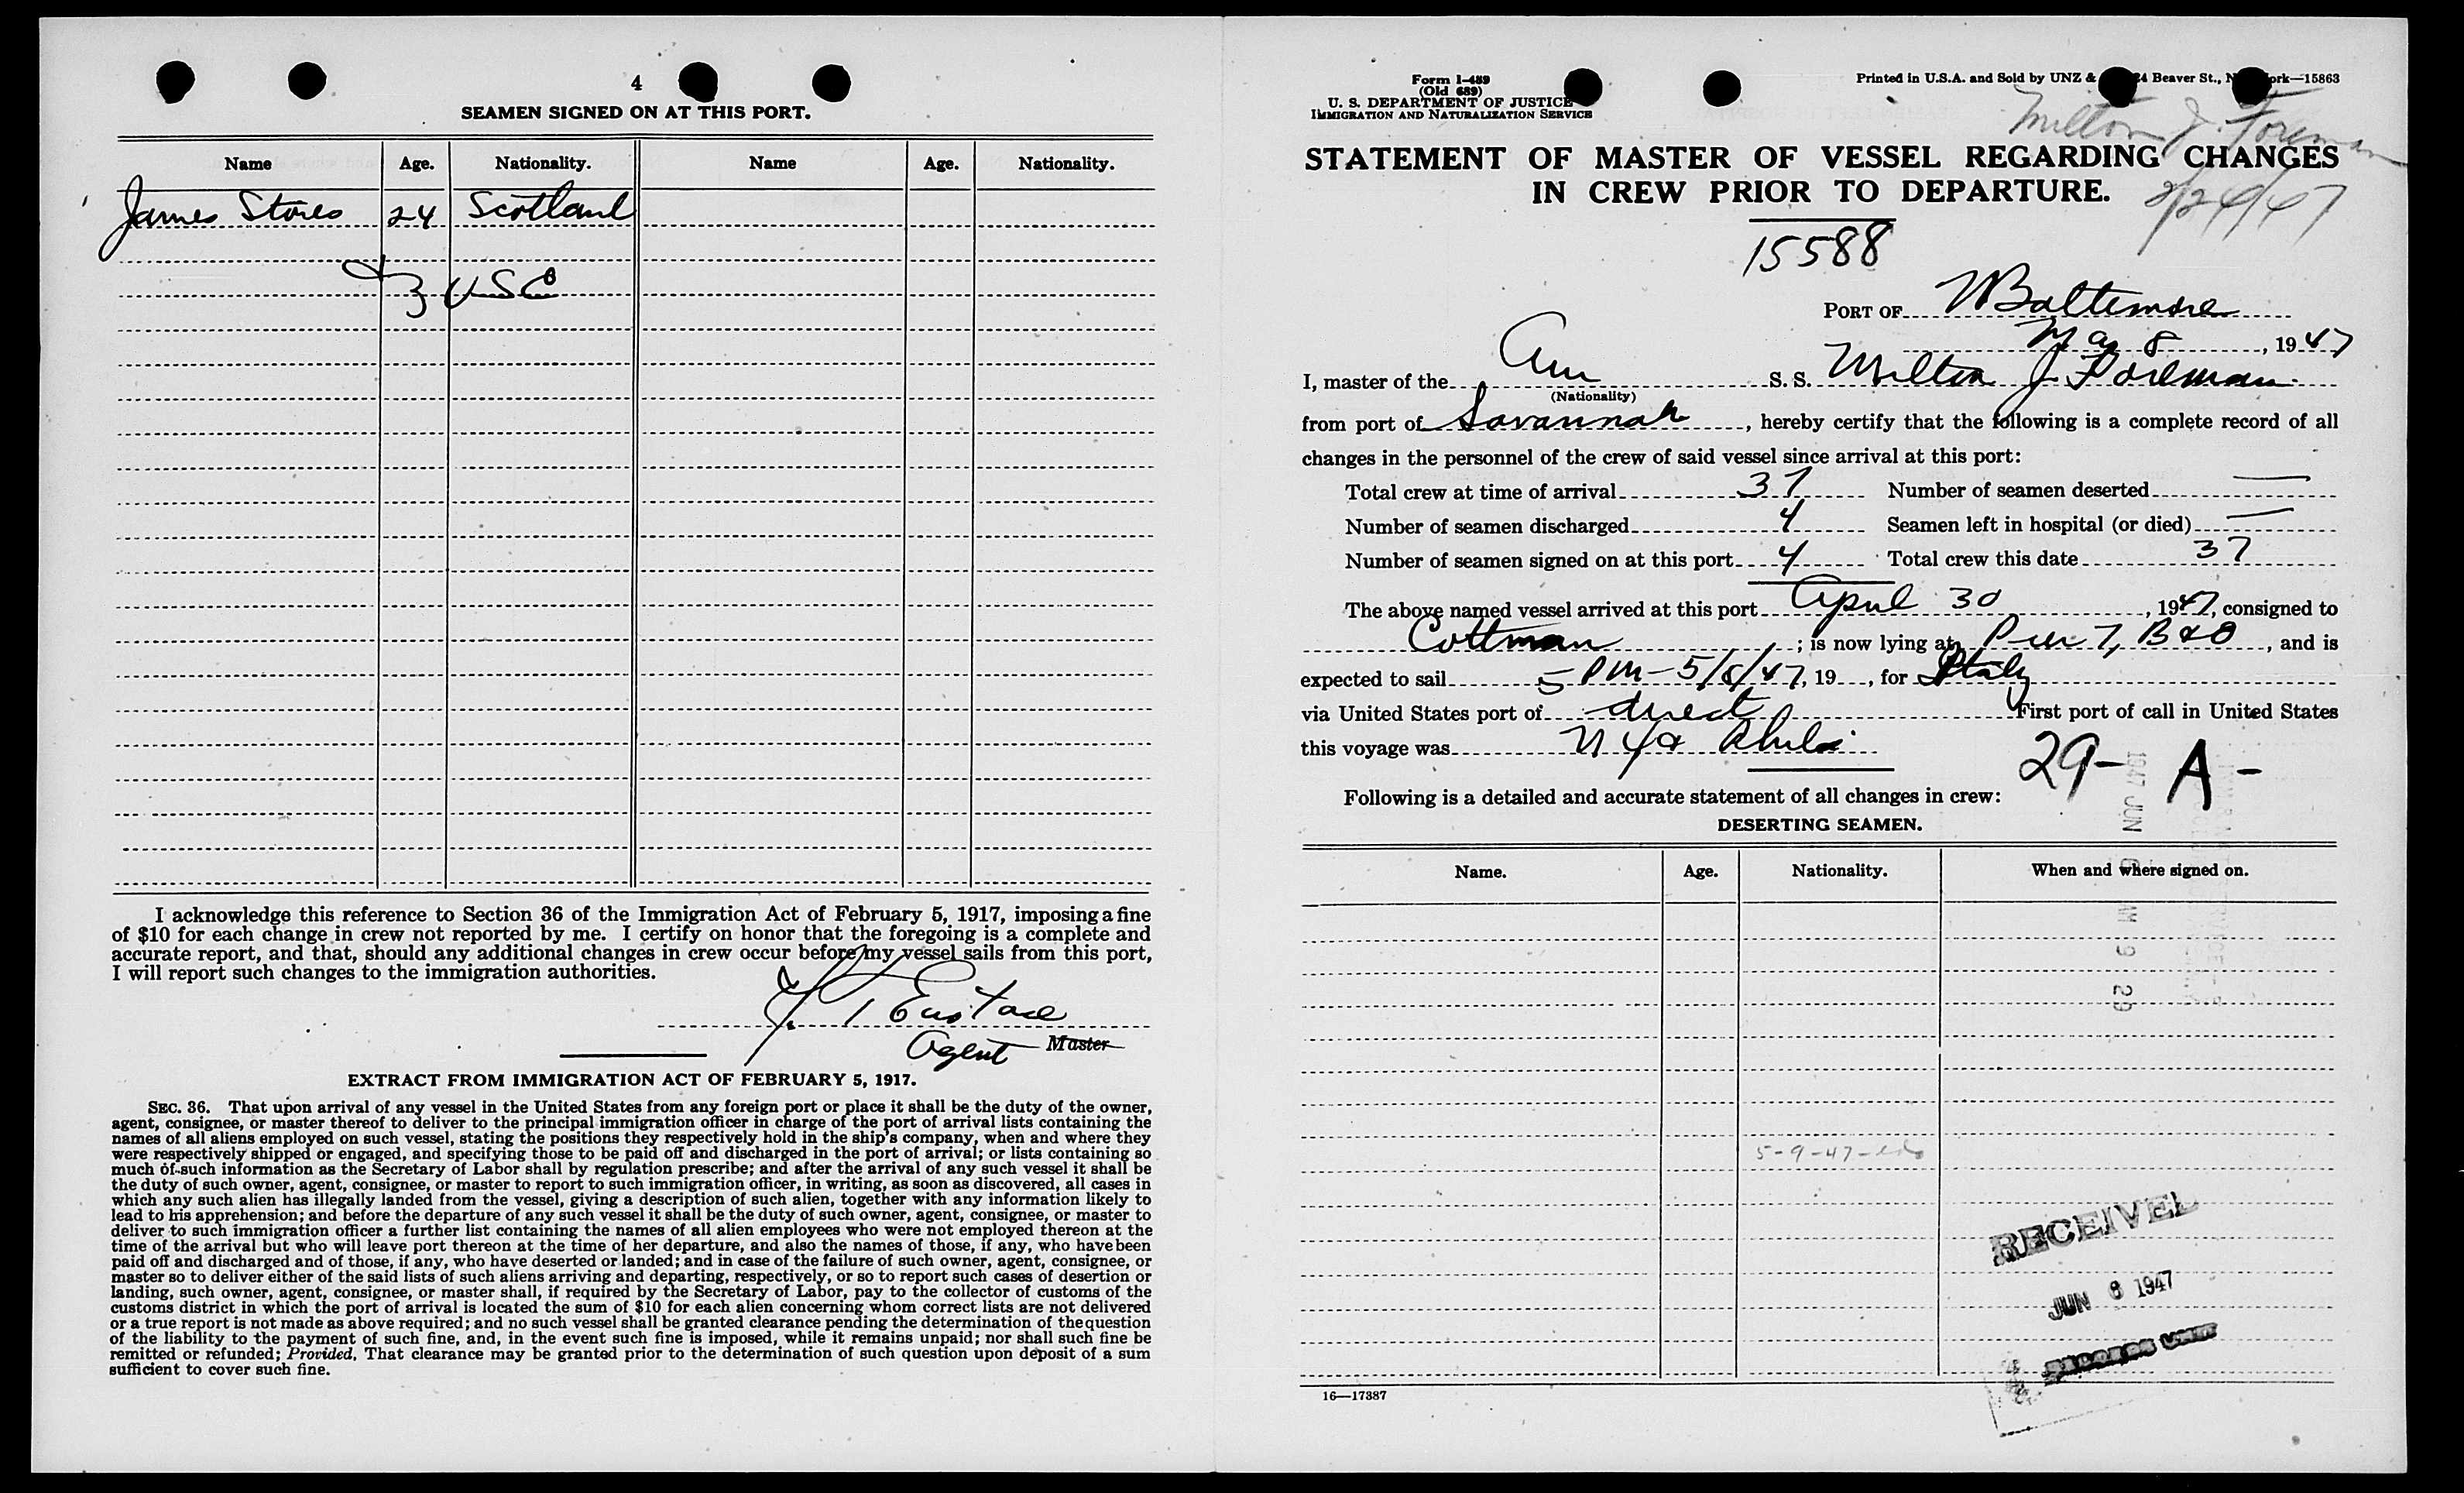 4
SEAMEN SIGNED ON AT THIS PORT.
Name Age. Nationality. Name Age. Nationality.
James Stores 24 Scotland
& 3 USC
I acknowledge this reference to Section 36 of the Immigration Act of February 5, 1917, imposing a fine
of $10 for each change in crew not reported by me. I certify on honor that the foregoing is a complete and
accurate report, and that, should any additional changes in crew occur before my vessel sails from this port,
I will report such changes to the immigration authorities.
Eustace
Agent Master
EXTRACT FROM IMMIGRATION ACT OF FEBRUARY 5, 1917.
SEC. 36. That upon arrival of any vessel in the United States from any foreign port or place it shall be the duty of the owner,
agent, consignee, or master thereof to deliver to the principal immigration officer in charge of the port of arrival lists containing the
names of all aliens employed on such vessel, stating the positions they respectively hold in the ship's company, when and where they
were respectively shipped or engaged, and specifying those to be paid off and discharged in the port of arrival; or lists containing so
much of such information as the Secretary of Labor shall by regulation prescribe; and after the arrival of any such vessel it shall be
the duty of such owner, agent, consignee, or master to report to such immigration officer, in writing, as soon as discovered, all cases in
which any such alien has illegally landed from the vessel, giving a description of such alien, together with any information likely to
lead to his apprehension; and before the departure of any such vessel it shall be the duty of such owner, agent, consignee, or master to
deliver to such immigration officer a further list containing the names of all alien employees who were not employed thereon at the
time of the arrival but who will leave port thereon at the time of her departure, and also the names of those, if any, who have been
paid off and discharged and of those, if any, who have deserted or landed; and in case of the failure of such owner, agent, consignee, or
master so to deliver either of the said lists of such aliens arriving and departing, respectively, or so to report such cases of desertion or
landing, such owner, agent, consignee, or master shall, if required by the Secretary of Labor, pay to the collector of customs of the
customs district in which the port of arrival is located the sum of $10 for each alien concerning whom correct lists are not delivered
or a true report is not made as above required; and no such vessel shall be granted clearance pending the determination of the question
of the liability to the payment of such fine, and, in the event such fine is imposed, while it remains unpaid; nor shall such fine be
remitted or refunded; Provided, That clearance may be granted prior to the determination of such question upon deposit of a sum
sufficient to cover such fine.
Form I-489
(Old 689)
U. S. DEPARTMENT OF JUSTICE
IMMIGRATION AND NATURALIZATION SERVICE
Printed in U.S.A. and Sold by UNZ & 24 Beaver St., N ork—15863
Milton J. Foreman
STATEMENT OF MASTER OF VESSEL REGARDING CHANGES
IN CREW PRIOR TO DEPARTURE.
2/24/47
15588
PORT OF Baltimore
May 8, 1947
I, master of the Am S. S. Milton J. Foreman
(Nationality)
from port of Savannah, hereby certify that the following is a complete record of all
changes in the personnel of the crew of said vessel since arrival at this port:
Total crew at time of arrival 37 Number of seamen deserted —
Number of seamen discharged 4 Seamen left in hospital (or died) —
Number of seamen signed on at this port 4 Total crew this date 37
The above named vessel arrived at this port April 30, 1947, consigned to
Cottman; is now lying at Pier 7, B&O, and is
expected to sail 5 PM - 5/8/47, 19, for Italy
via United States port of direct First port of call in United States
this voyage was
29- A-
Following is a detailed and accurate statement of all changes in crew:
DESERTING SEAMEN.
Name. Age. Nationality. When and where signed on.
1947 JUN 6 AM 9 29
5-9-47-
RECEIVED
JUN 6 1947
RECORDS UNIT
16—17387